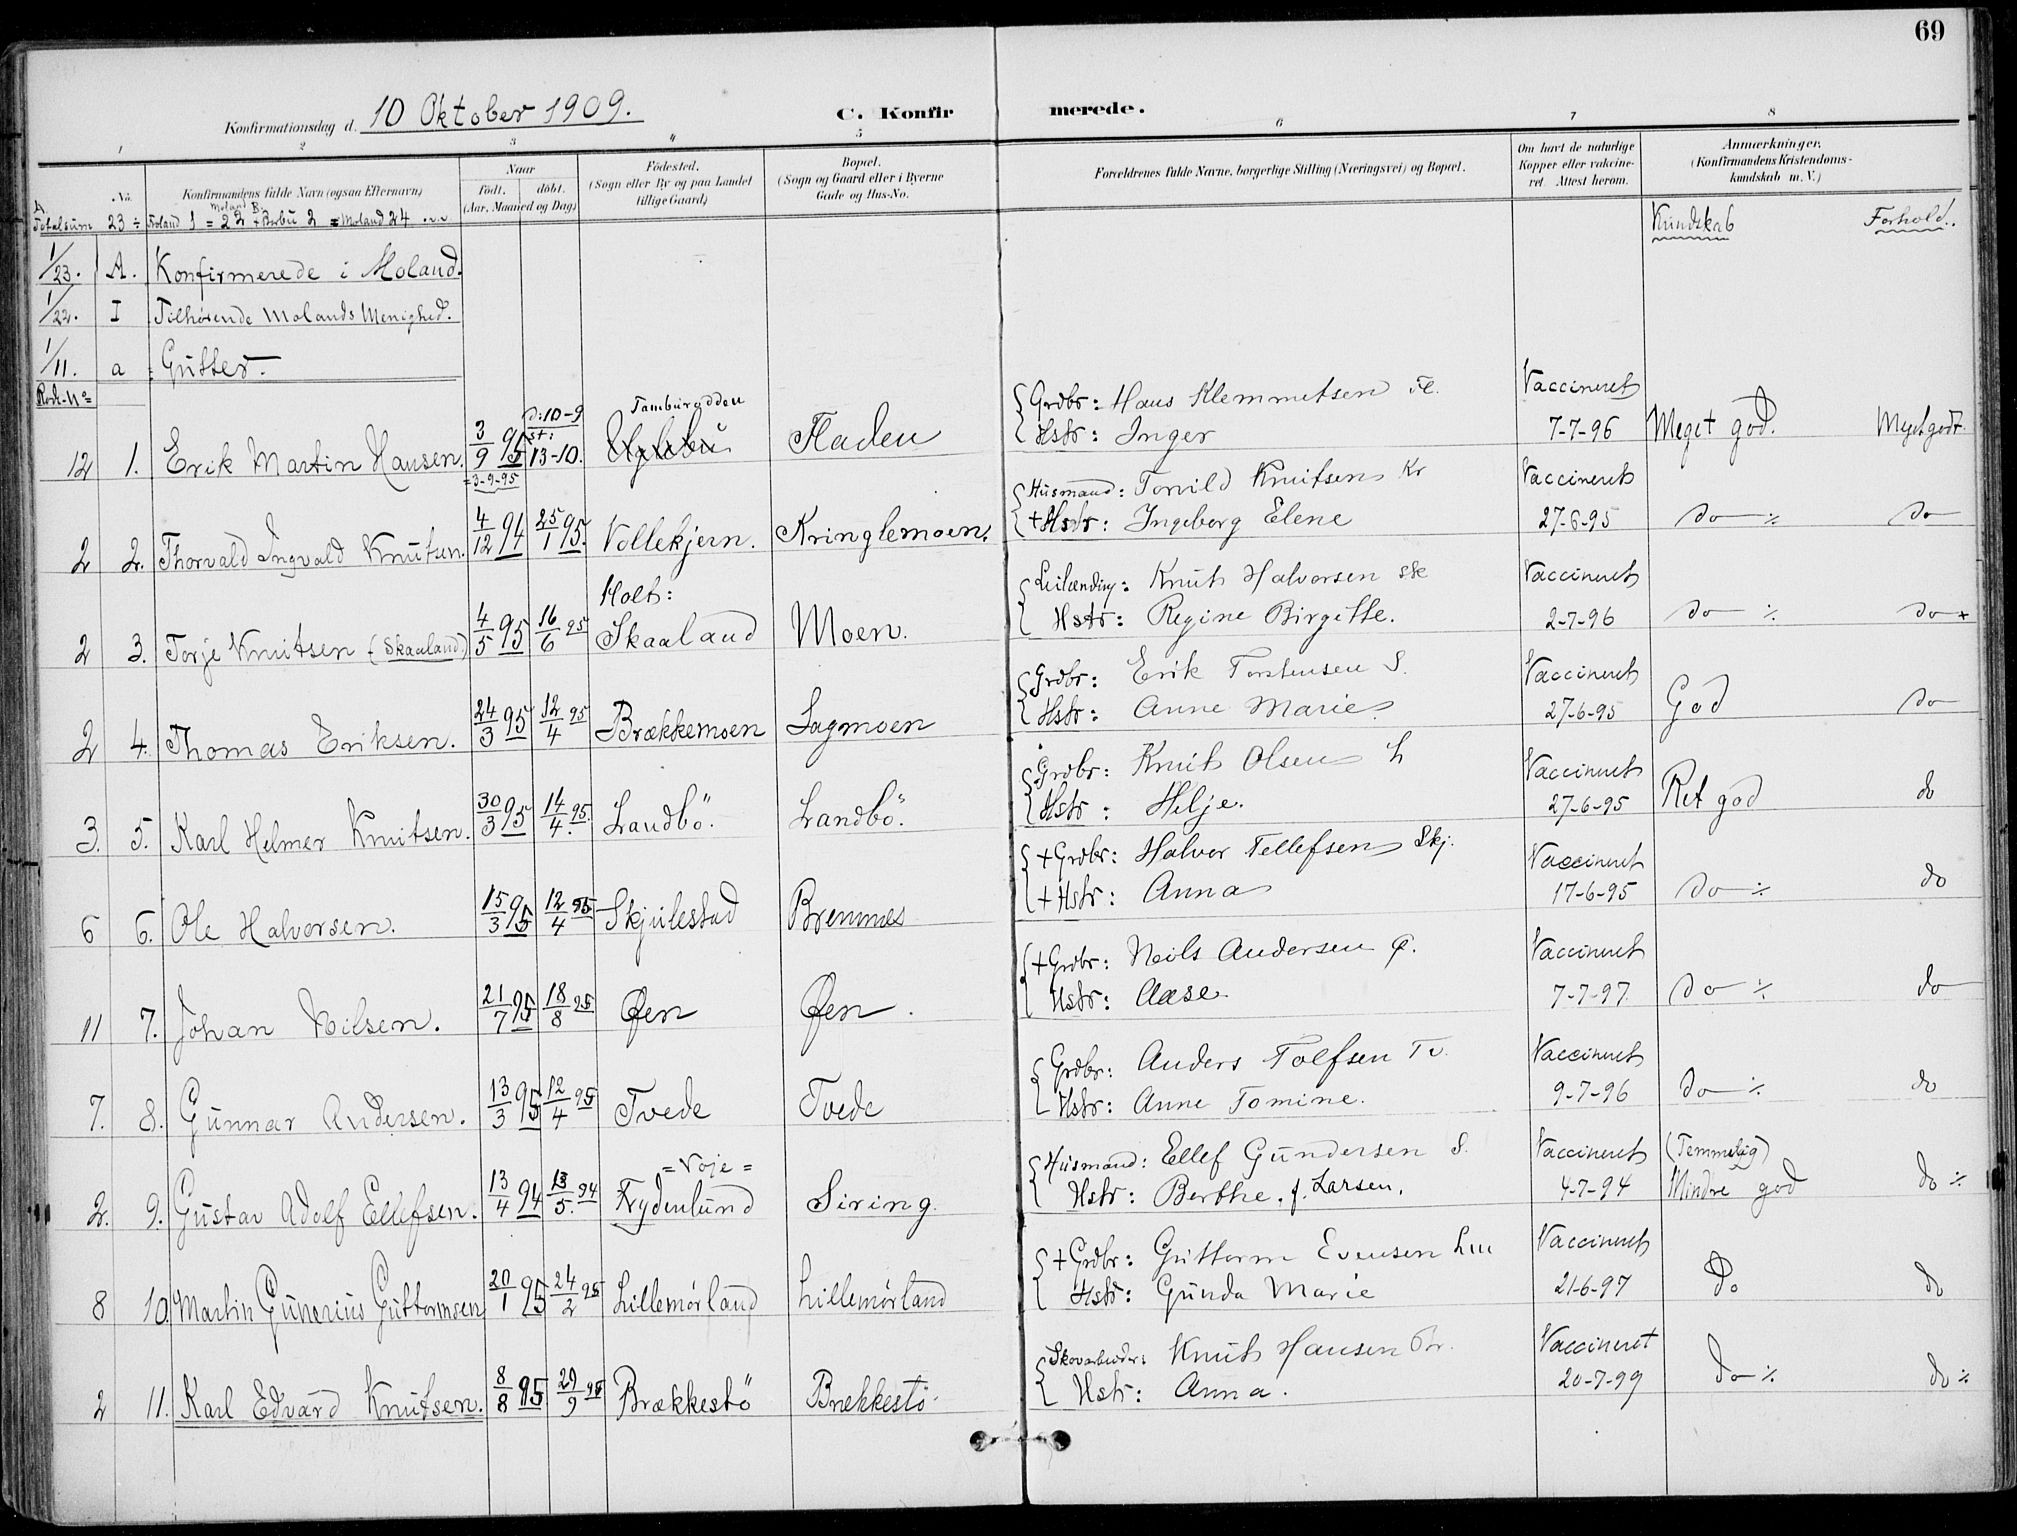 69
Konfirmationsdag d. 10 Oktober 1909.
C. Konfirmerede.
1 2 3 4 5 6 7 8
No. Konfirmandens fulde Navn (ogsaa Efternavn) Naar født. døbt. (Aar, Maaned og Dag) Fødested. (Sogn eller By og paa Landet tillige Gaard) Bopæl. (Sogn og Gaard eller i Byerne Gade og Hus-No. Forældrenes fulde Navne, borgerlige Stilling (Næringsvei) og Bopæl. Om havt de naturlige Kopper eller vaccineret. Attest herom. Anmærkninger. (Konfirmandens Kristendomskundskab m. V.)
A. Totalsum 23 ÷ Froland 1 = Moland 22 + B. Barbu 2 = Moland 24
Kundskab Forhold.
1/23. A. Konfirmerede i Moland.
1/22. I Tilhørende Molands Menighed.
1/11. a Gutter.
Rode-No
12 1. Erik Martin Hansen. 3/9 95 =3-9-95 d: 10-9 st: 13-10. Tamburodden Fladen {Grdbr: Hans Klemmetsen Fl. Hstr: Inger Vaccineret 7-7-96 Meget god. Megt godt.
2 2. Thorvald Ingvald Knutsen. 4/12 94 25/1 95. Vollekjern. Kringlemoen. {Husmand: Torvild Knutsen Kr +Hstr: Ingeborg Elene Vaccineret 27-6-95 do ٪ do
2 3. Torje Knutsen (Skaaland) 4/5 95 16/6 95 Holt: Skaaland Moen. {Leilænding: Knut Halvorsen Sk Hstr: Regine Birgitte. Vaccineret 2-7-96 do ٪ do +
2 4. Thomas Eriksen. 24/3 95 12/4 95 Brækkemoen Lagmoen {Grdbr: Erik Torstensen S. Hstr: Anne Marie. Vaccineret 27-6-95 God do
3. 5. Karl Helmer Knutsen. 30/3 95 14/4. 95. Landbö. Landbö. {Grdbr: Knut Olsen L Hstr: Helje. Vaccineret 27-6-95 Ret god do
6 6. Ole Halvorsen. 15/3 95 12/4 95 Skjulestad Bremmes {+Grdbr: Halvor Tellefsen Skj. +Hstr: Anna Vaccineret 17-6-95 do ٪ do
11 7. Johan Nilsen. 21/7 95 18/8 95 Øen Øen. {+Grdbr: Neils Andersen Ø. Hstr: Aase. Vaccineret 7-7-97. do ٪ do
7. 8. Gunnar Andersen. 13/3 95 12/4 95 Tvede Tvede {Grdbr: Anders Tolfsen Tv. Hstr: Anne Tomine. Vaccineret 9-7-96 do ٪ do
2. 9. Gustav Adolf Ellefsen. 13/4 94 13/5. 94 =Voje= Frydenlund Siring. {Husmand: Ellef Gundersen S. Hstr: Berthe. f. Larsen. Vaccineret 4-7-94 (Temmelig) Mindre god do ٪
8 10. Martin Gunerius Guttormsen 20/1 95 24/2 95 Lillemørland Lillemørland {+Grdbr: Guttorm Evensen Lm Hstr: Gunda Marie Vaccineret 21-6-97 Do do
2 11. Karl Edvard Knutsen. 8/8 95 29/9 95 Brækkestö Brekkestö {Skovarbeider: Knut Hansen Br. Hstr: Anna. Vaccineret 20-7-99 do ٪ do ٪